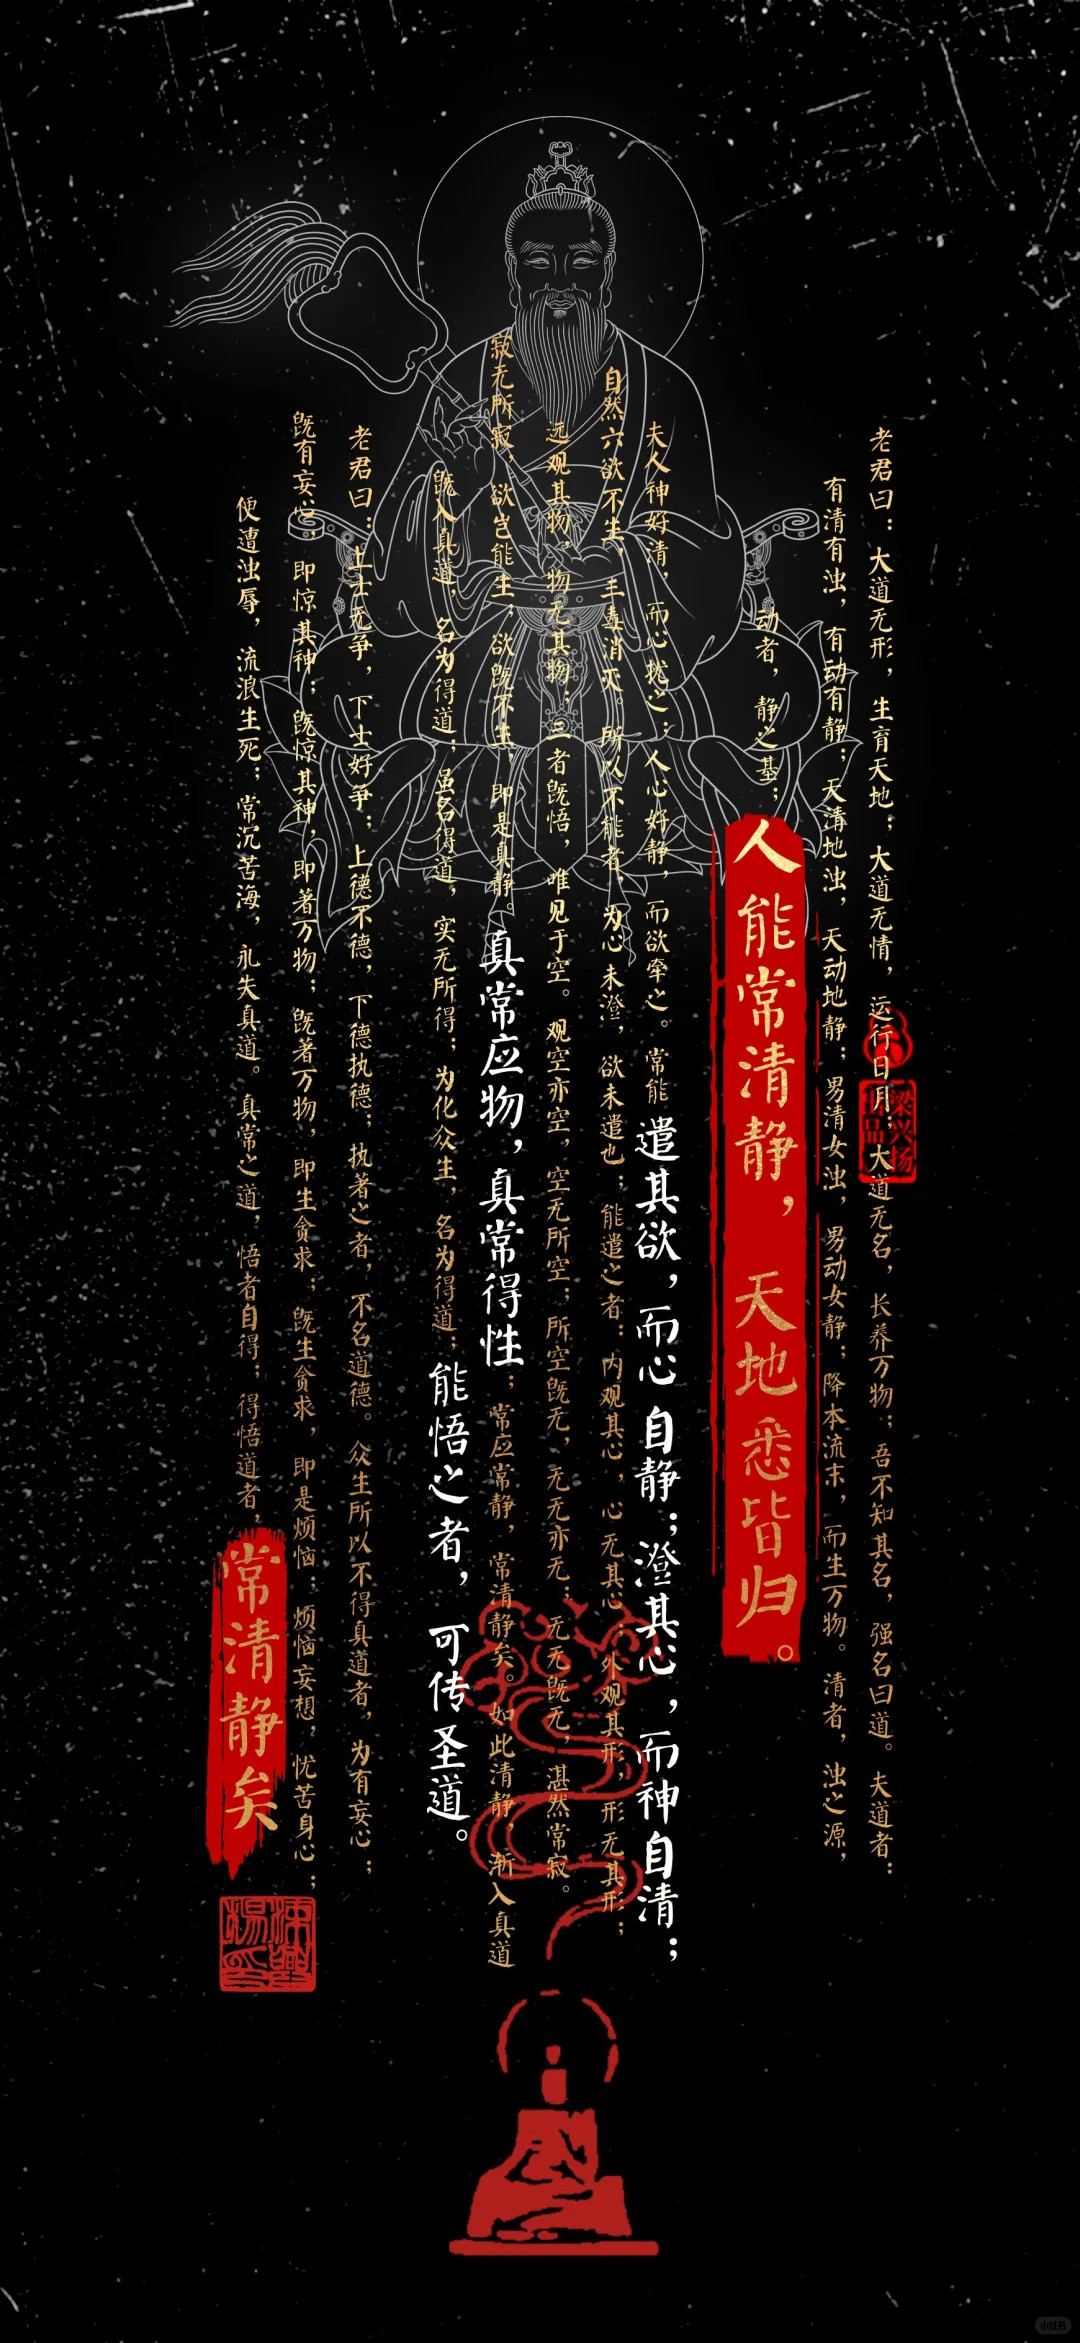 老君曰：大道无形，生育天地；大道无情，运行日月；大道无名，长养万物；吾不知其名，强名曰道。夫道者：
有清有浊，有动有静；天清地浊，天动地静；男清女浊，男动女静；降本流末，而生万物。清者，浊之源，
动者，静之基；人能常清静，天地悉皆归。
夫人神好清，而心扰之；人心好静，而欲牵之。常能遣其欲，而心自静；澄其心，而神自清；
自然六欲不生，三毒消灭。所以不能者，为心未澄，欲未遣也；能遣之者：内观其心，心无其心；外观其形，形无其形；
远观其物，物无其物；三者既悟，唯见于空。观空亦空，空无所空；所空既无，无无亦无；无无既无，湛然常寂。
寂无所寂，欲岂能生；欲既不生，即是真静。真常应物，真常得性；常应常静，常清静矣。如此清静，渐入真道
既入真道，名为得道；虽名得道，实无所得；为化众生，名为得道；能悟之者，可传圣道。
老君曰：上士无争，下士好争；上德不德，下德执德；执著之者，不名道德。众生所以不得真道者，为有妄心；
既有妄心，即惊其神；既惊其神，即著万物；既著万物，即生贪求；既生贪求，即是烦恼；烦恼妄想，忧苦身心；
便遭浊辱，流浪生死；常沉苦海，永失真道。真常之道，悟者自得；得悟道者，常清静矣
梁兴扬
小红书